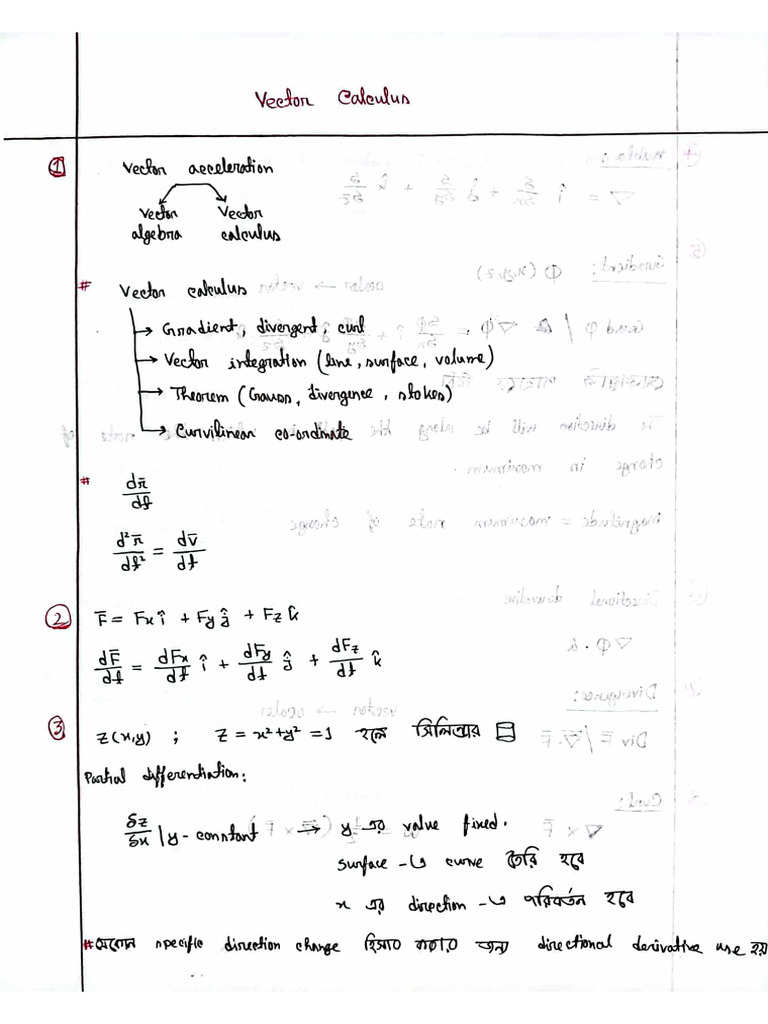 Vector Calculus
① Vector acceleration
Vector algebra Vector calculus
# Vector calculus
→ Gradient, divergent, curl
→ Vector integration (line, surface, volume)
→ Theorem (Gauss, divergence, stokes)
→ Curvilinear co-ordinate
# dr̄/dt
d²r̄/dt² = dv̄/dt
② F̄ = Fx î + Fy ĵ + Fz k̂
dF̄/dt = dFx/dt î + dFy/dt ĵ + dFz/dt k̂
③ Z(x,y) ; Z = x²+y² = 1 হলে সিলিন্ডার
Partial differentiation:
δz/δx | y - constant → y এর value fixed.
surface -এ curve তৈরি হবে
x এর direction -এ পরিবর্তন হবে
# specific direction change হিসাব করার জন্য directional derivative use হয়